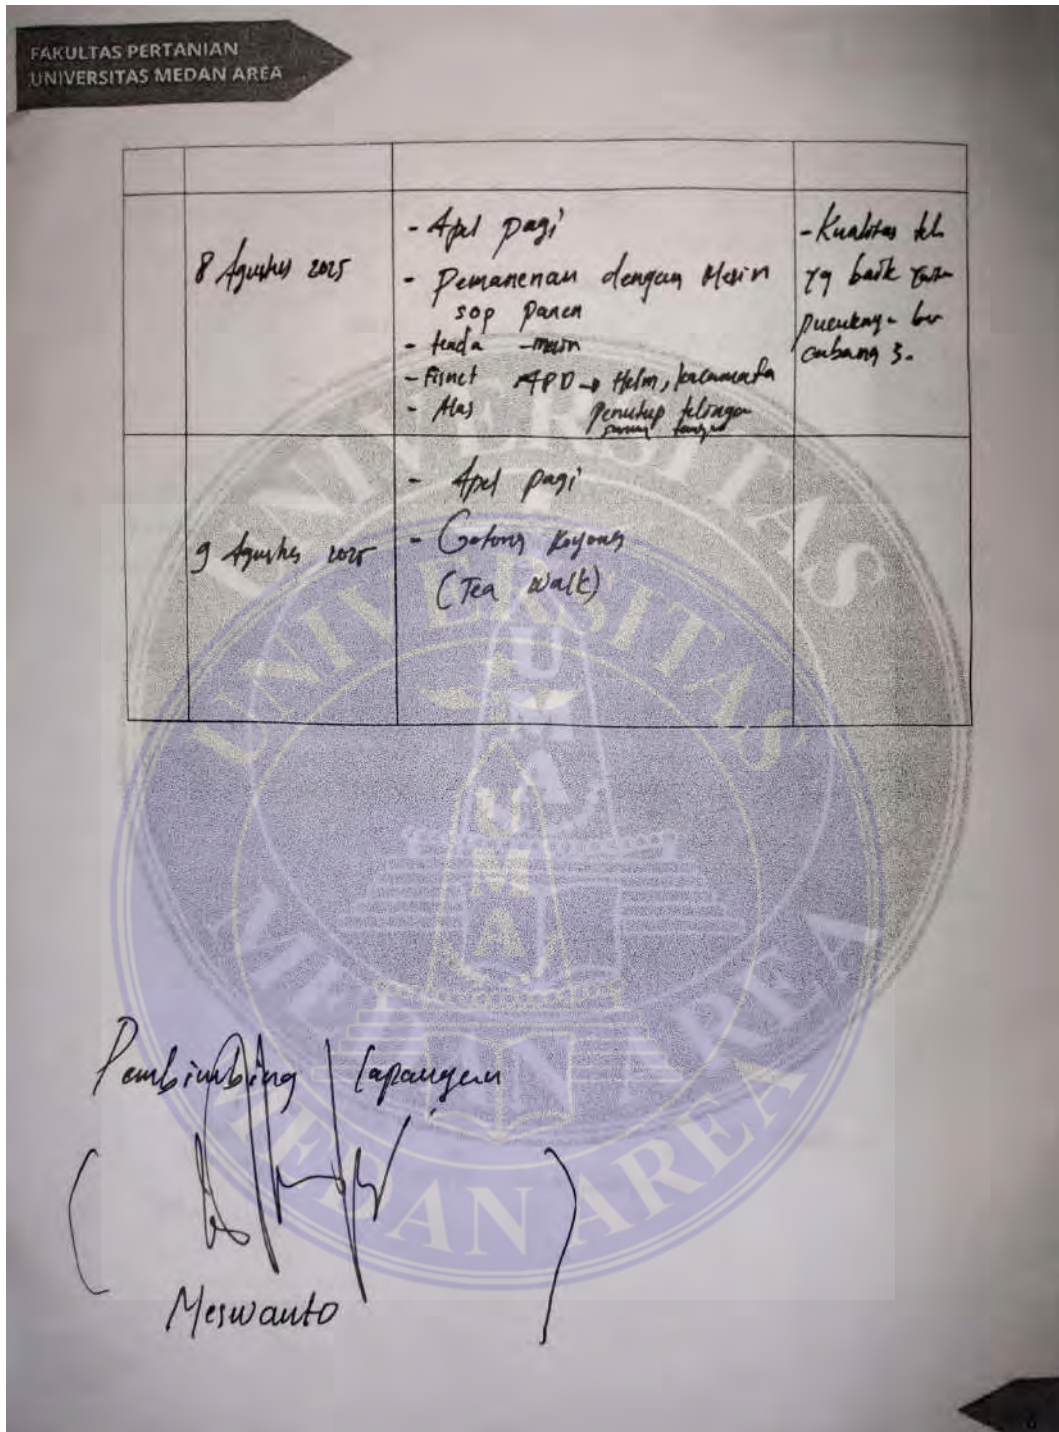 FAKULTAS PERTANIAN
UNIVERSITAS MEDAN AREA
8 Agustus 2025
- Apel pagi
- Pemanenan dengan Mesin
sop panen
- tenda - mesin
- Fisnet APD → Helm, kacamata
- Alas penutup telinga
sarung tangan
- Kualitas teh
yg baik
pucuknya
cabang 3.
9 Agustus 2025
- Apel pagi
- Gotong Royong
(Tea walk)
UNIVERSITAS
MEDAN AREA
UMA
UNIVERSITAS
MEDAN AREA
UMA
Pembimbing lapangan
( )
Meswanto